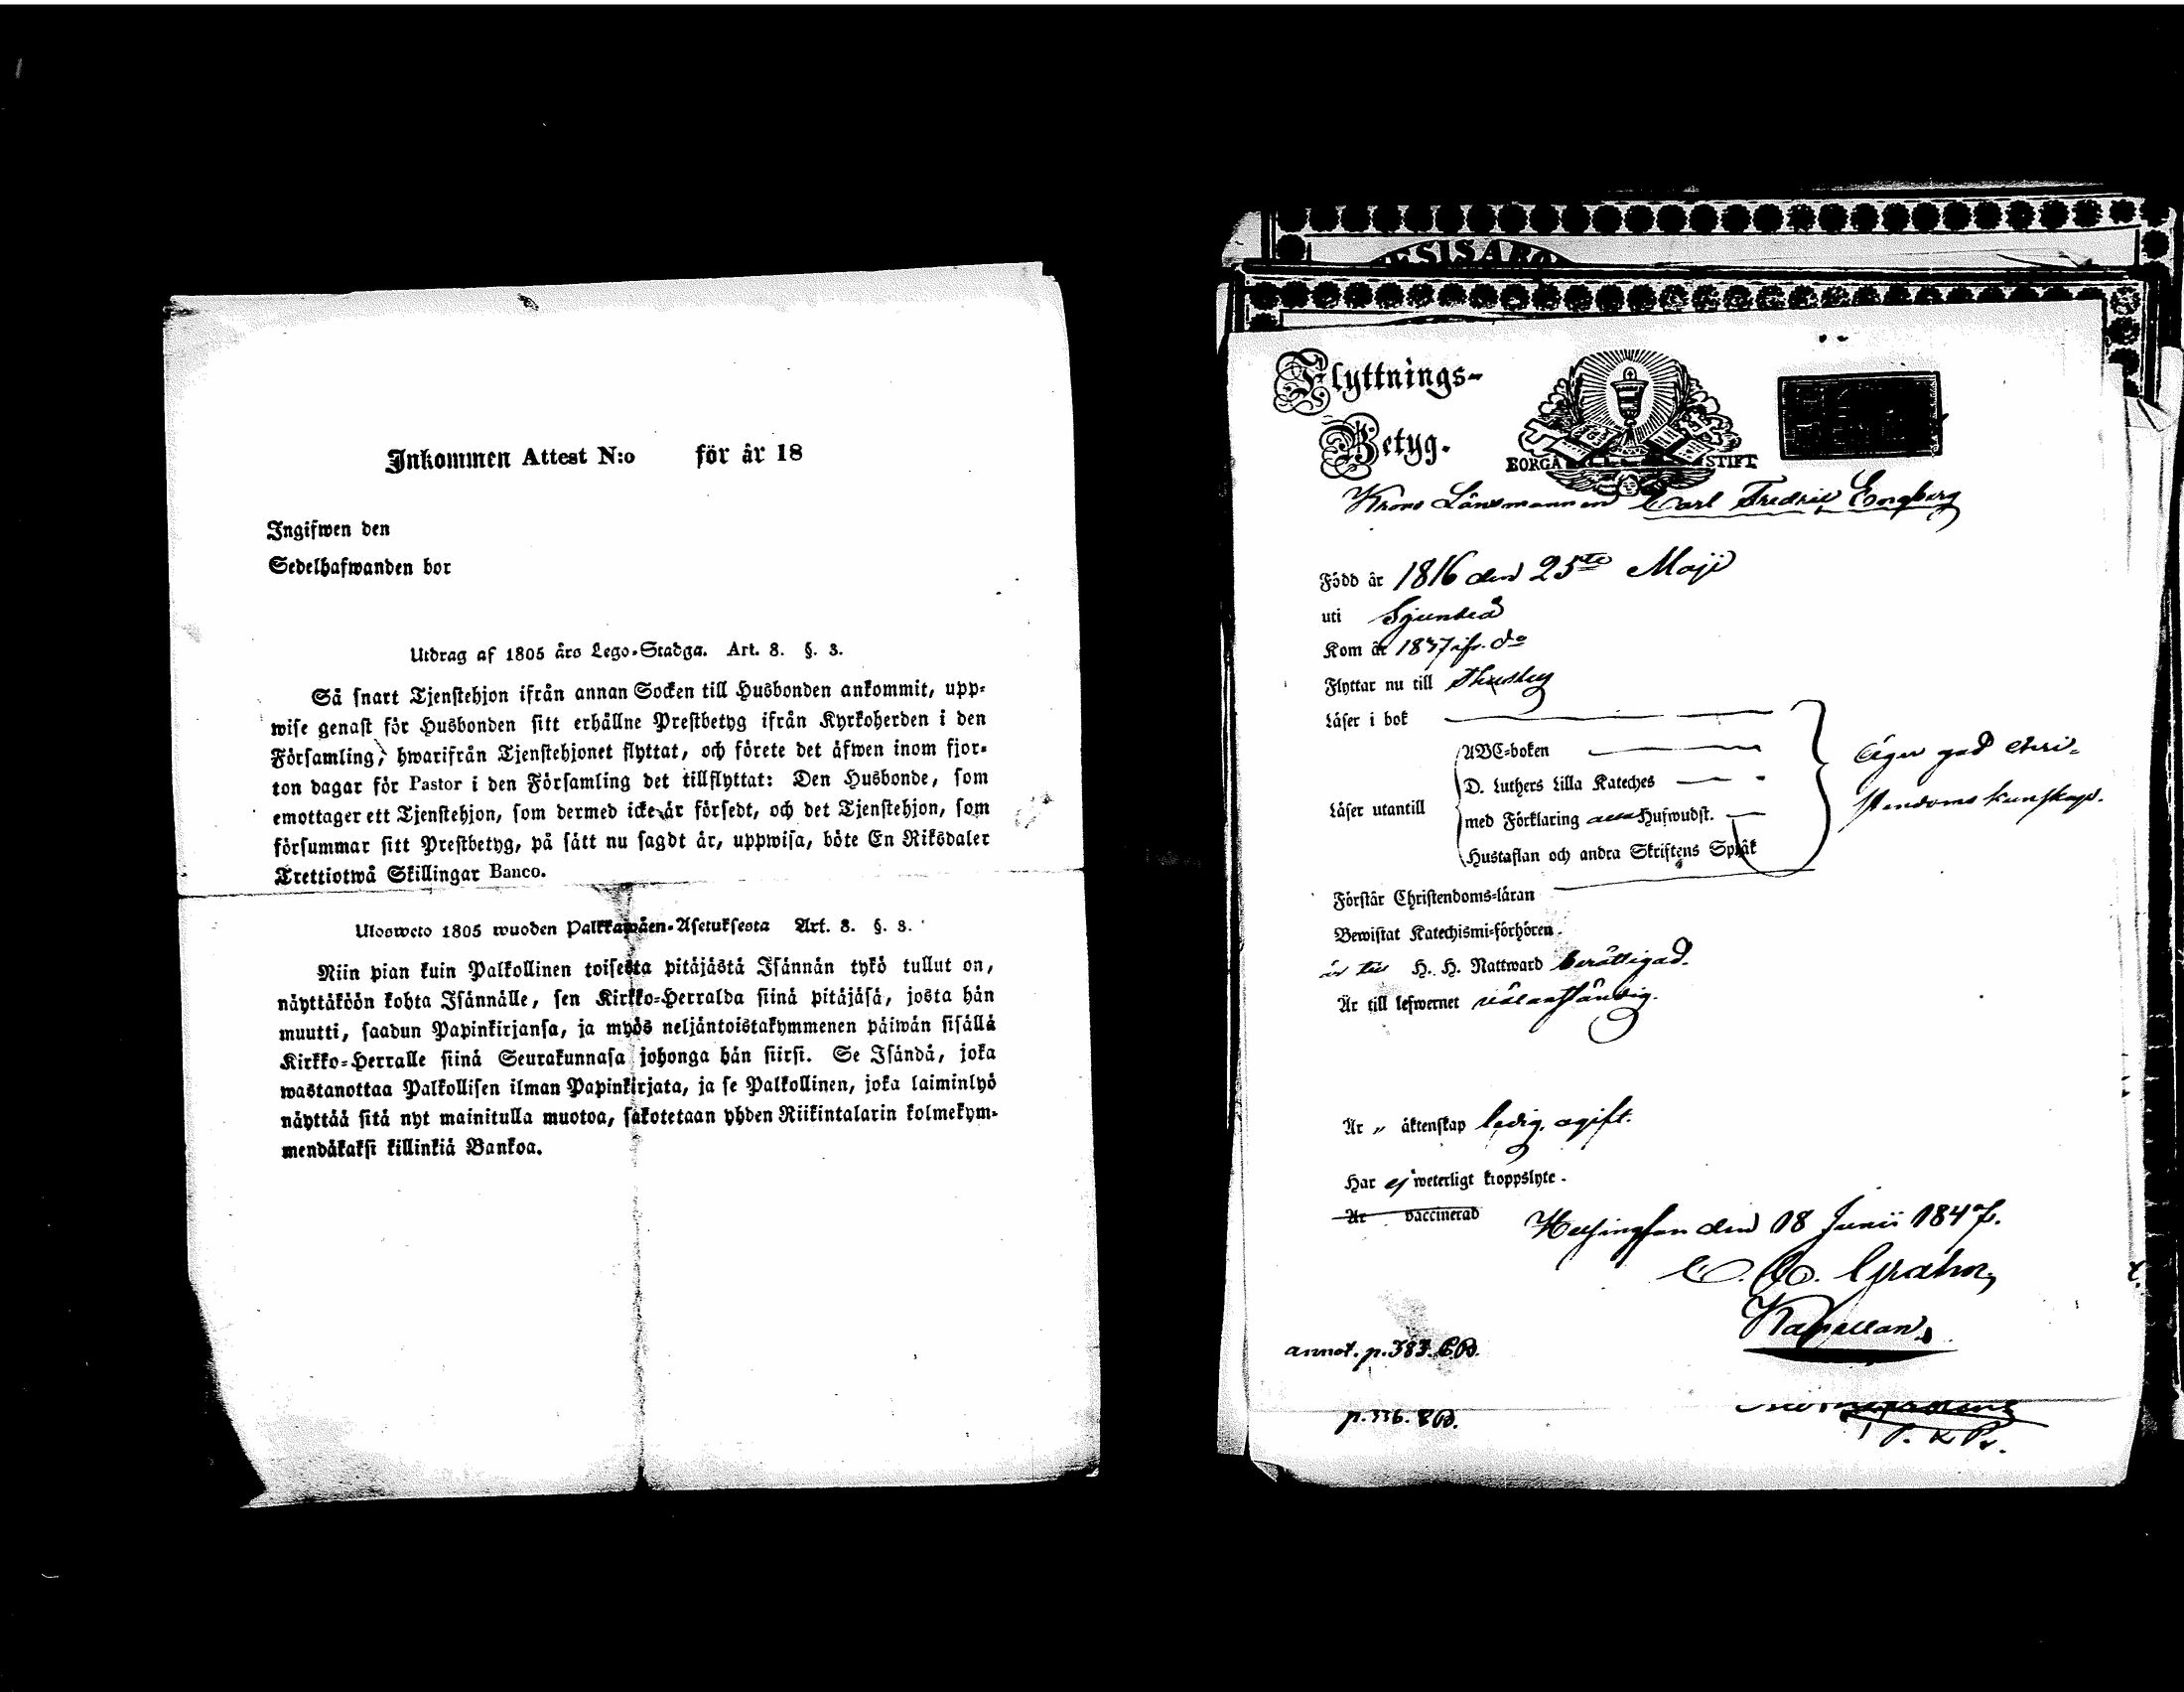 Inkommen Attest N:o för år 18
Ingifwen den
Sedelhafwanden bor
Utdrag af 1805 års Lego-Stadga. Art. 8. §. 3.
Så snart Tjenstehjon ifrån annan Socken till Husbonden ankommit, upp-
wise genast för Husbonden sitt erhållne Prestbetyg ifrån Kyrkoherden i den
Församling, hwarifrån Tjenstehjonet flyttat, och förete det äfwen inom fjor-
ton dagar för Pastor i den Församling det tillflyttat: Den Husbonde, som
emottager ett Tjenstehjon, som dermed icke är försedt, och det Tjenstehjon, som
försummar sitt Prestbetyg, på sätt nu sagdt är, uppwisa, böte En Riksdaler
Trettiotwå Skillingar Banco.
Uloswето 1805 wuoden Palkkawäen-Asetuksesta Art. 8. §. 3.
Niin pian kuin Palkollinen toisesta pitäjästä Isännän tykö tullut on,
näyttäköön kohta Isännälle, sen Kirkko-Herralda siinä pitäjäsä, josta hän
muutti, saadun Papinkirjansa, ja myös neljäntoistakymmenen päiwän sisällä
Kirkko-Herralle siinä Seurakunnasa johonga hän siirsi. Se Isändä, joka
wastanottaa Palkollisen ilman Papinkirjata, ja se Palkollinen, joka laiminlyö
näyttää sitä nyt mainitulla muotoa, sakotetaan yhden Riikintalarin kolmekym-
mendäkaksi killinkiä Bankoa.
ESISARA
Flyttnings-
Betyg.
BORGÅ STIFT
Krono Länsmannen Carl Fredric Engberg
Född år 1816 den 25te Maji
uti Sjundeå
Kom år 1837 ifr. do
Flyttar nu till Thusby
Läser i bok
Läser utantill
ABC-boken
D. Luthers Lilla Kateches
med Förklaring Hufwudst.
Hustaflan och andra Skriftens Språk
Äger god Chri-
stendoms kunskap.
Förstår Christendoms-läran
Bewistat Katechismi-förhören
är till H. H. Nattward berättigad.
Är till lefwernet välanständig.
Är " äktenskap ledig, ogift.
Har ej weterligt kroppslyte.
Är vaccinerad
Helsingfors den 18 Junii 1847.
Grahn,
Kapellan.
annot. p. 383.
p. 336.